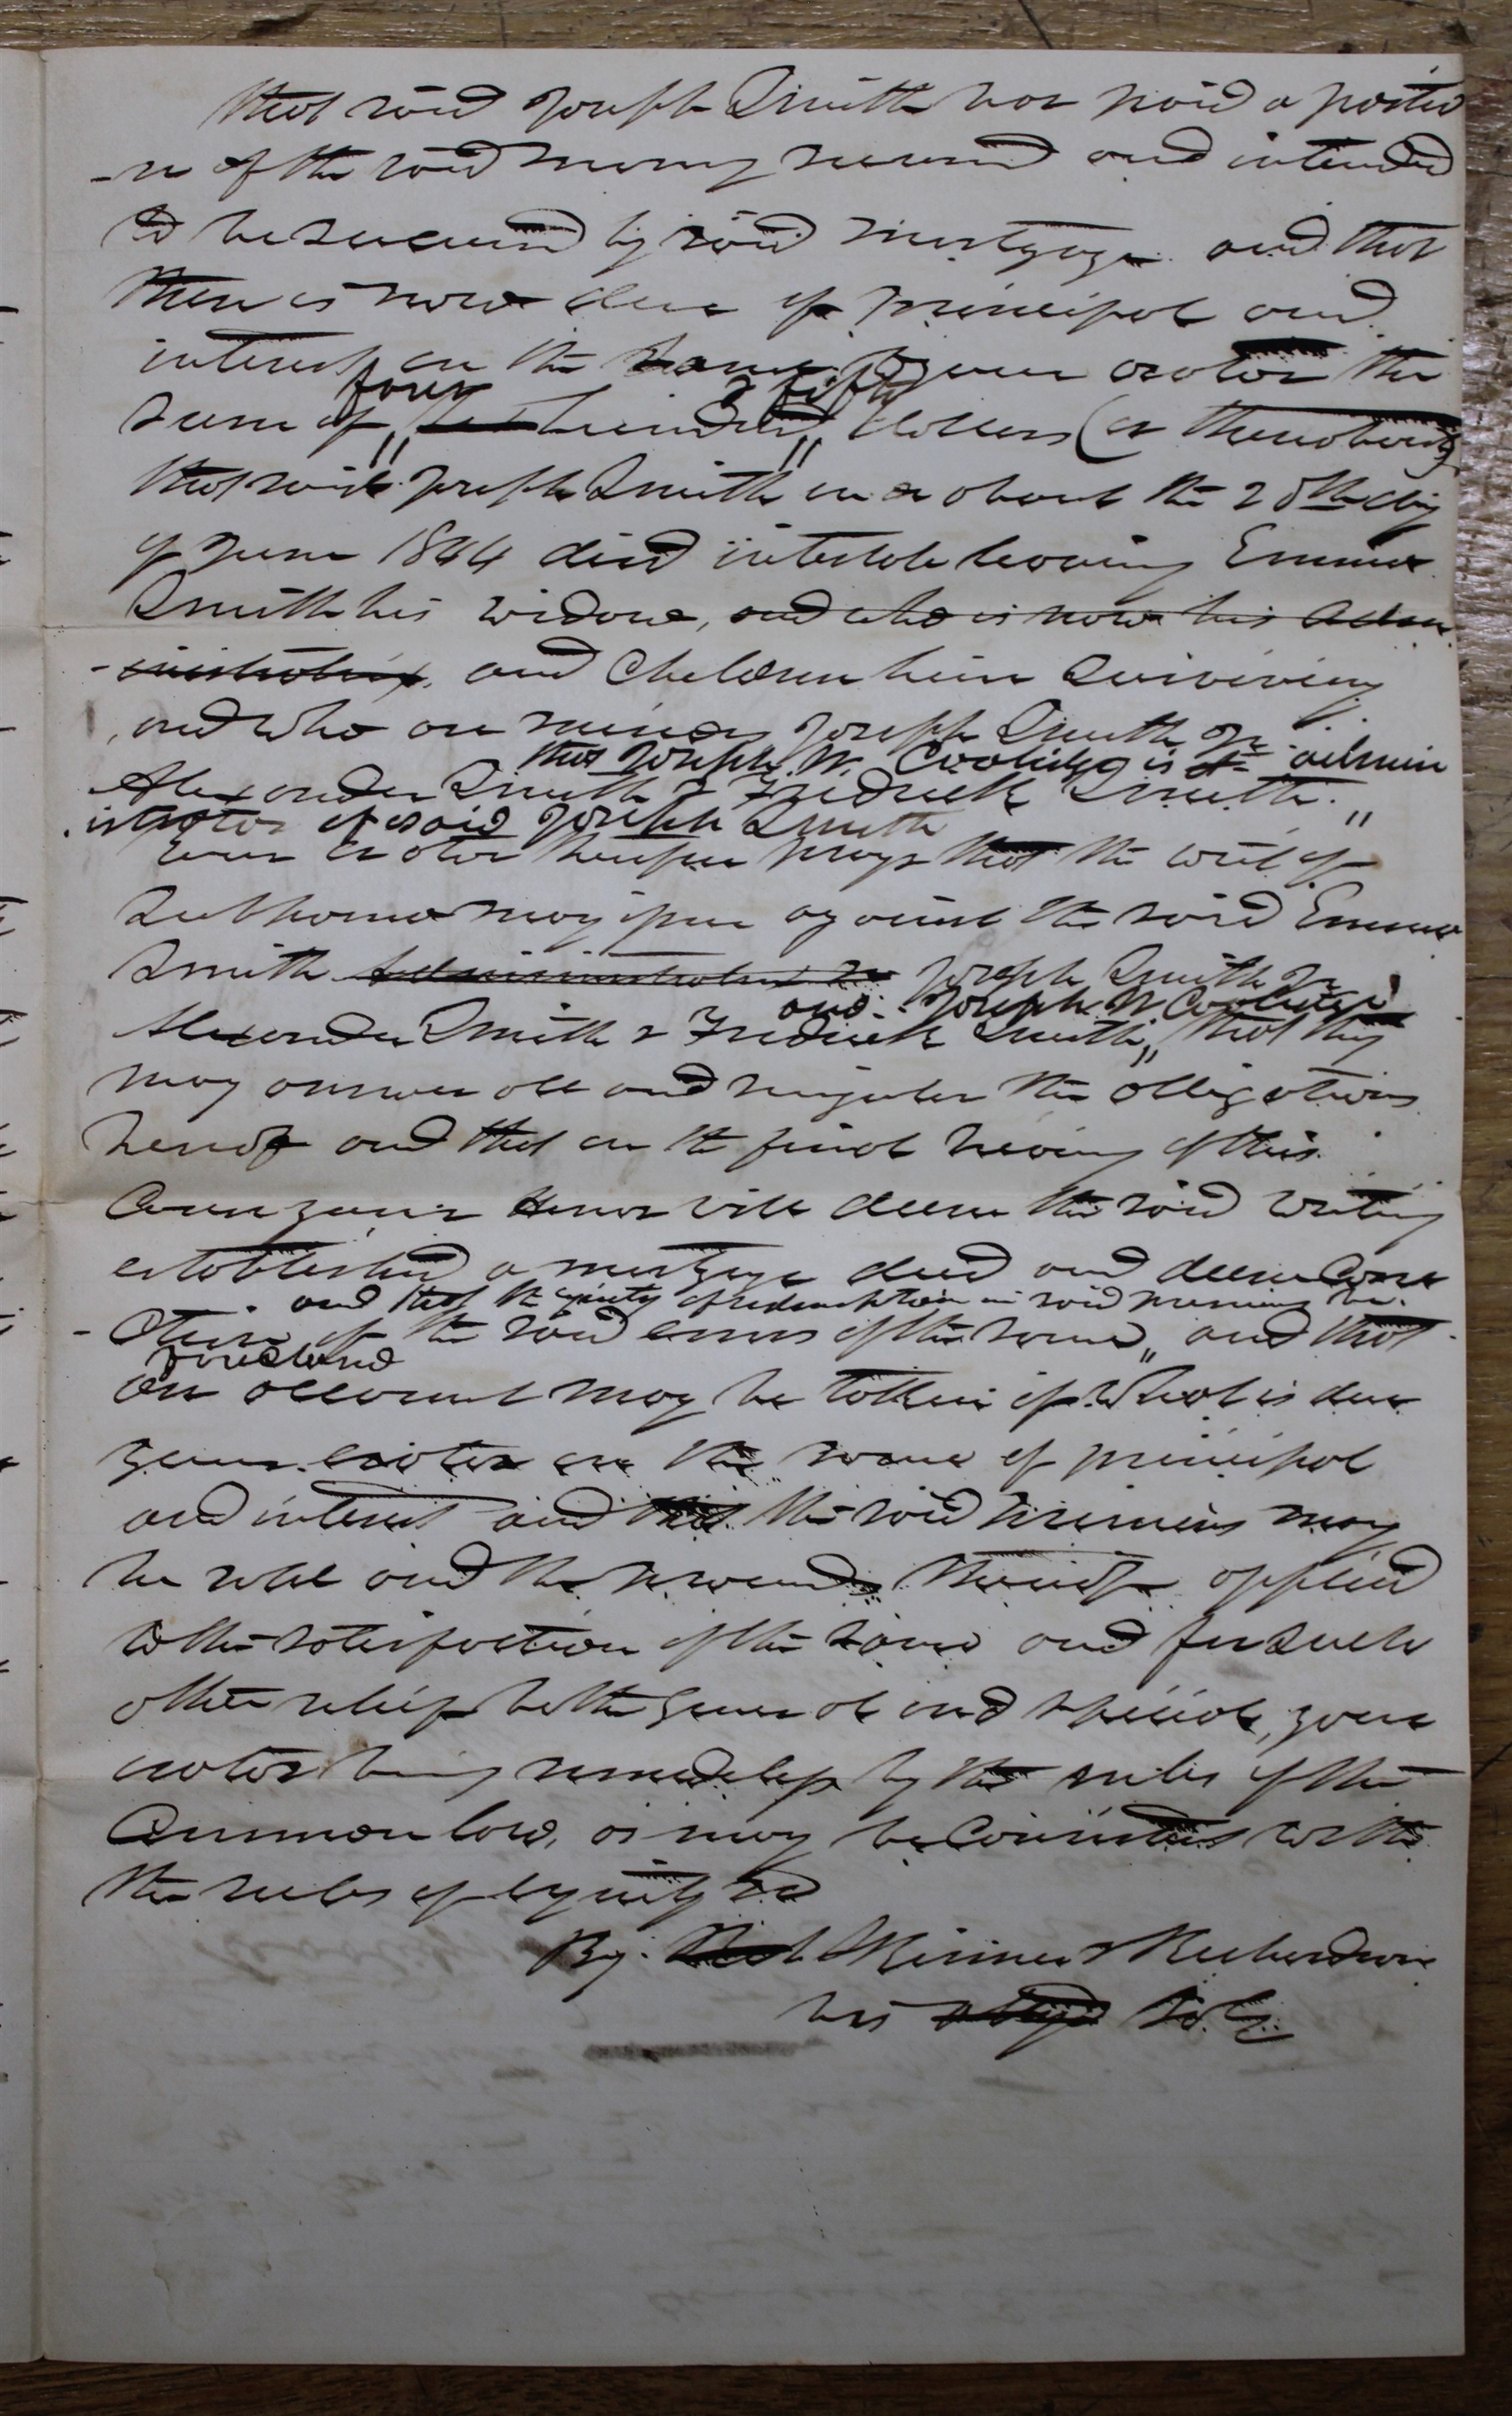 that said Joseph Smith has paid a portio
-n of the said money secured and intended
to be secured by said mortgage and that
there is now due of principal and
interest on the same to your orator the
four & fifty
sum of hundred dollars (or thereabouts)
that said Joseph Smith on or about the 28th day
of June 1844 died intestate leaving Emma
Smith his widow, and who is now his Adm
-inistratrix, and Children him surviving
, and who are minors Joseph Smith Jr
that Joseph W. Coolidge is admin
Alexander Smith & Fredrick Smith.
istrator of said Joseph Smith
Your orator therefore prays that the writ of
Subpoena may issue against the said Emma
Smith Administratrix Joseph Smith Jr
and Joseph W Coolidge
Alexander Smith & Fredrick Smith, that they
may answer all and singular the allegations
hereof and that on the final hearing of this
Cause your Honor will decree the said writing
established a mortgage deed and decree
and that the equity of redemption in said premises be
of the said of the same and that
foreclosed
an account may be taken of what is due
your orator on the same of principal
and interest and that the said premises may
be sold and the proceeds thereof applied
to the satisfaction of the same and for such
other relief both general and special, your
orator being remediless by the rules of the
Common law, as may be Consistent with
the rules of equity &c
By Skinner & Richardson
his Sol.